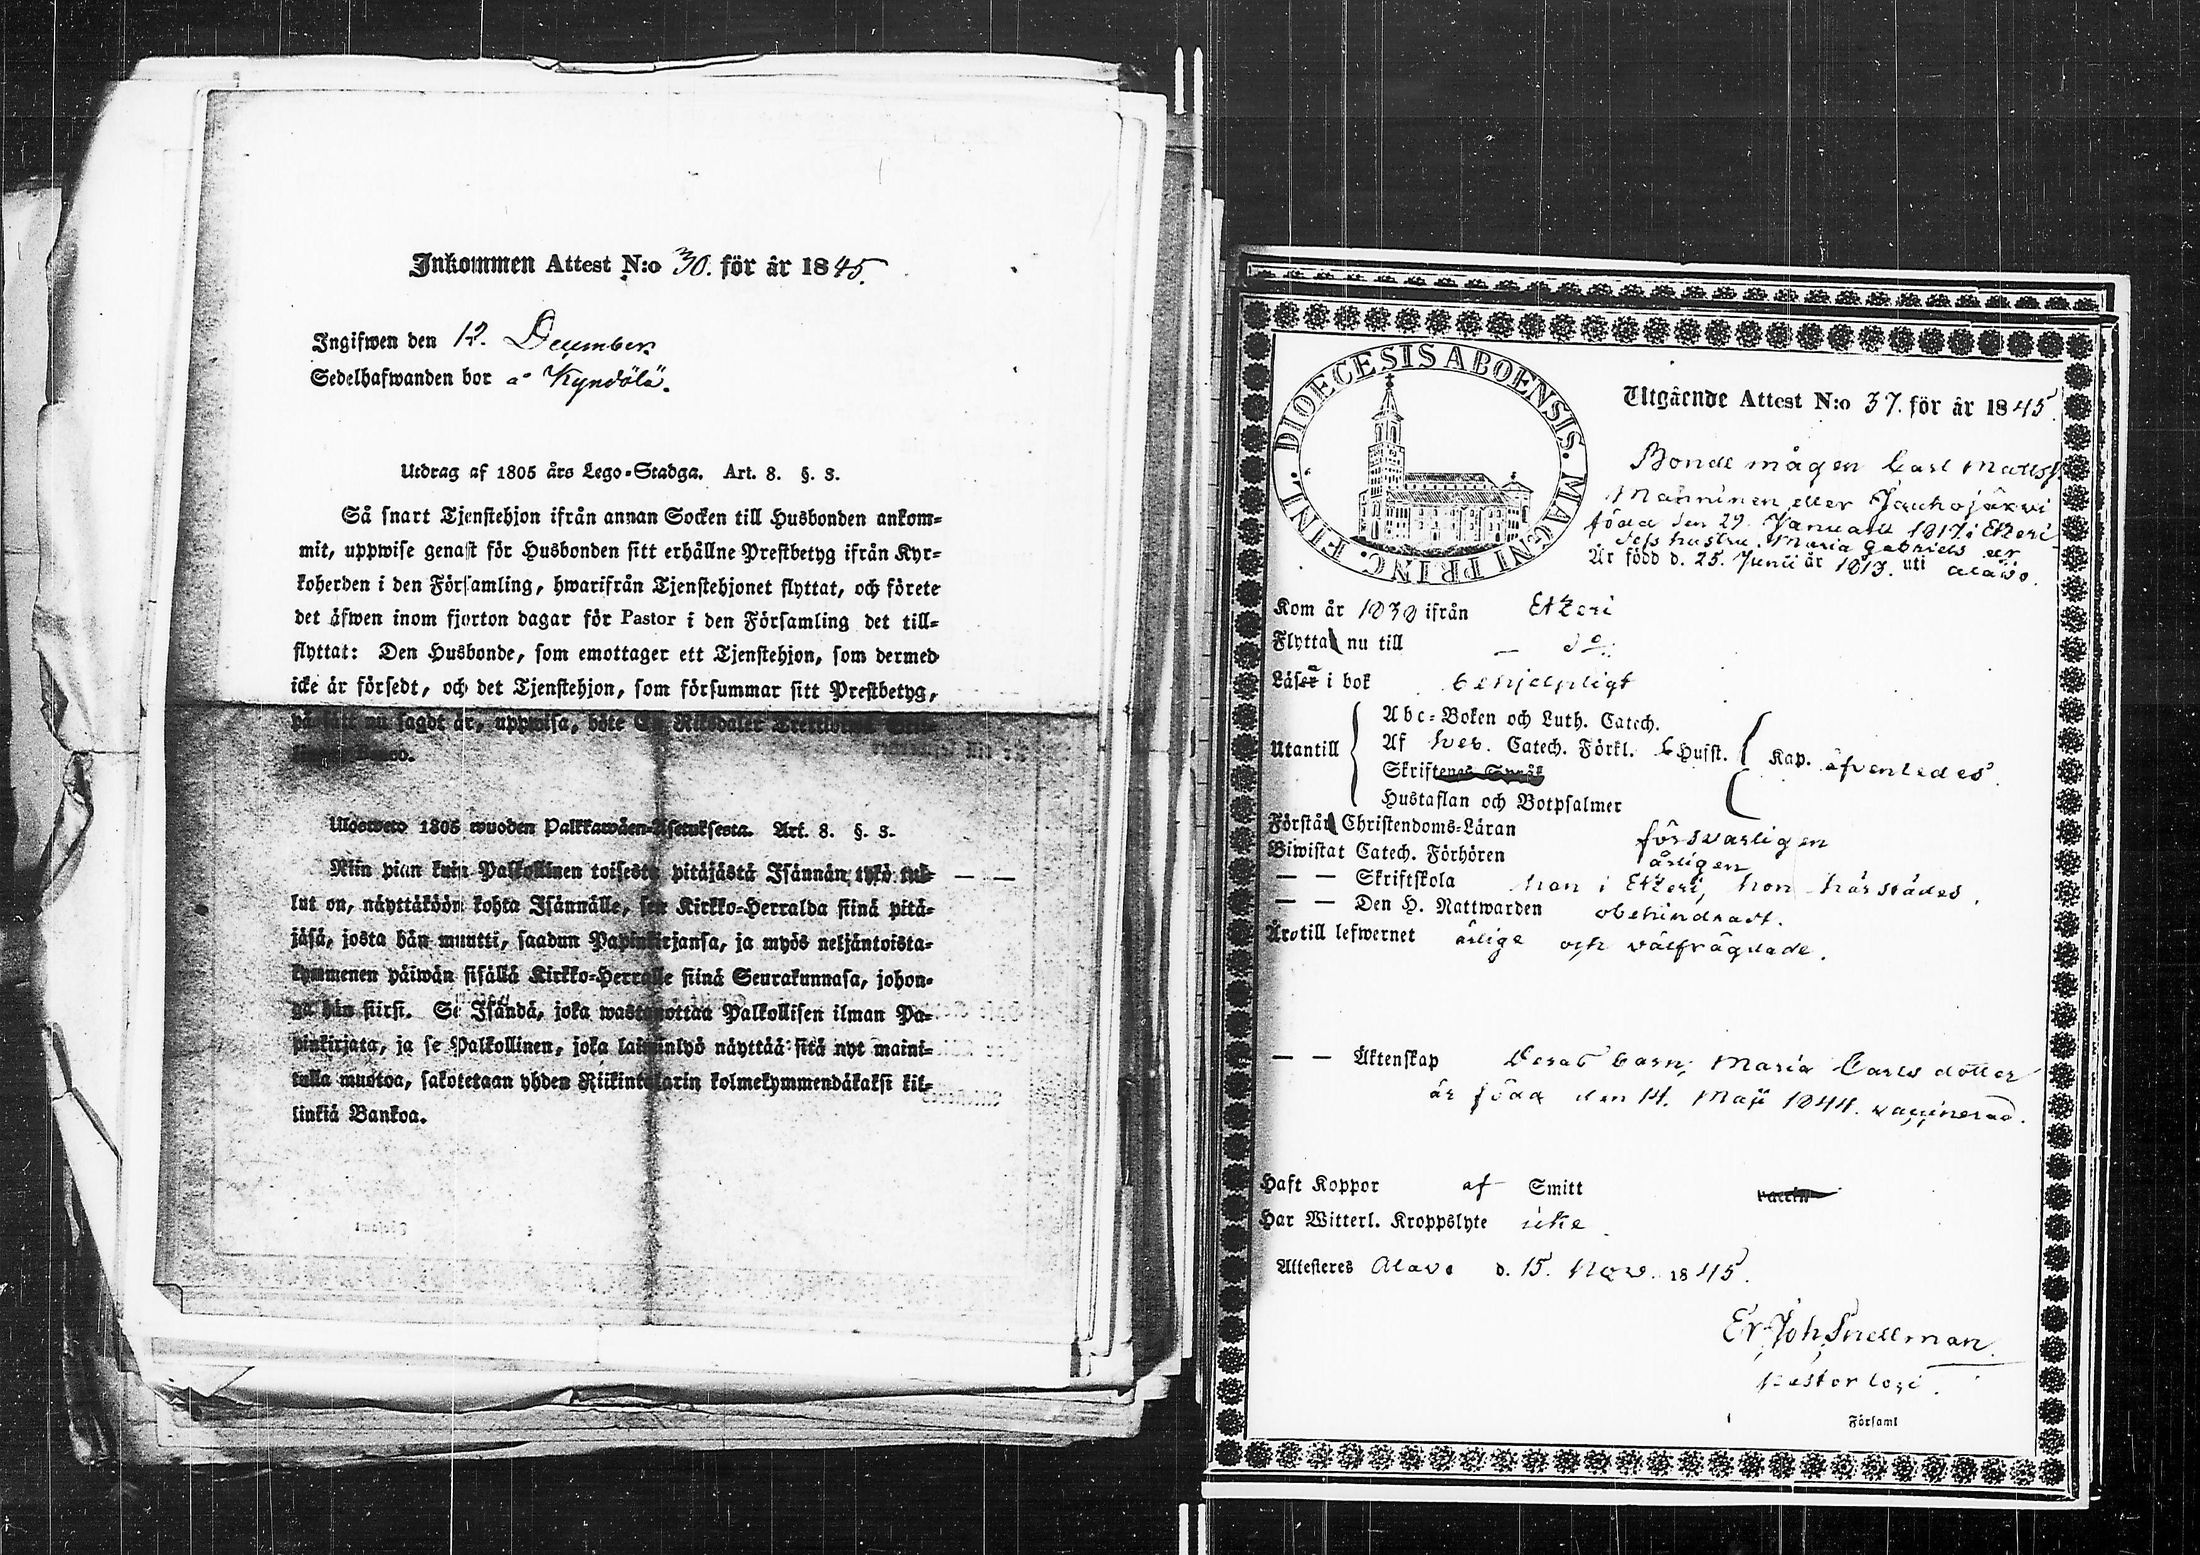 Inkommen Attest N:o 30. för år 1845.
Ingifwen den 12. December.
Sedelhafwanden bor å Kyndölä.
Utdrag af 1805 års Lego-Stadga. Art. 8. §. 3.
Så snart Tjenstehjon ifrån annan Socken till Husbonden ankom-
mit, uppwise genast för Husbonden sitt erhållne Prestbetyg ifrån Kyr-
koherden i den Församling, hwarifrån Tjenstehjonet flyttat, och förete
det äfwen inom fjorton dagar för Pastor i den Församling det till-
flyttat: Den Husbonde, som emottager ett Tjenstehjon, som dermed
icke är försedt, och det Tjenstehjon, som försummar sitt Prestbetyg,
på sätt nu sagdt är, uppwisa, böte En Riksdaler Trettiotwå Skil-
lingar Banco.
Ulosweto 1805 wuoden Palkkawäen-Asetuksesta. Art. 8. §. 3.
Niin pian kuin Palkollinen toisesta pitäjästä Isännän tykö tul-
lut on, näyttäköön kohta Isännälle, sen Kirkko-Herralda siinä pitä-
jäsä, josta hän muutti, saadun Papinkirjansa, ja myös neljäntoista-
kymmenen päiwän sisällä Kirkko-Herralle siinä Seurakunnasa, johon-
ga hän siirsi. Se Isändä, joka wastanottaa Palkollisen ilman Pa-
pinkirjata, ja se Palkollinen, joka laiminlyö näyttää sitä nyt maini-
tulla muotoa, sakotetaan yhden Riikintalarin kolmekymmendäkaksi kil-
linkiä Bankoa.
DIOECESIS ABOENSIS. MAGNI PRINC. FINL.
Utgående Attest N:o 37. för år 1845.
Bonde mågen Carl Mattss.
Manninen eller Jauhojärwi
född den 29. Januarii 1817 i Etzeri
Dess hustru Maria Gabriels der
Är född d. 25. Junii år 1813. uti Alavo.
Kom år 1839 ifrån Etzeri
Flytta nu till — do
Läser i bok behjelpligt
Abc-Boken och Luth. Catech.
Utantill Af Sveb. Catech. Förkl. 6 Hufst. Kap. äfvenledes
Skriftenes Språk
Hustaflan och Botpsalmer
Förstår Christendoms-Läran försvarligen
Biwistat Catech. Förhören årligen
— — Skriftskola han i Etzeri, hon härstädes.
— — Den H. Nattwarden obehindradt.
Äro till lefwernet ärlige och välfrägdade.
— — Äktenskap Deras barn, Maria Carls dotter
är född den 14. Maji 1844. vaccinerad.
Haft Koppor af Smitt vaccin
Har Witterl. Kroppslyte icke
Attesteres Alavo d. 15. Nov. 1845.
Er. Joh. Snellman.
Pastor loci.
Församl